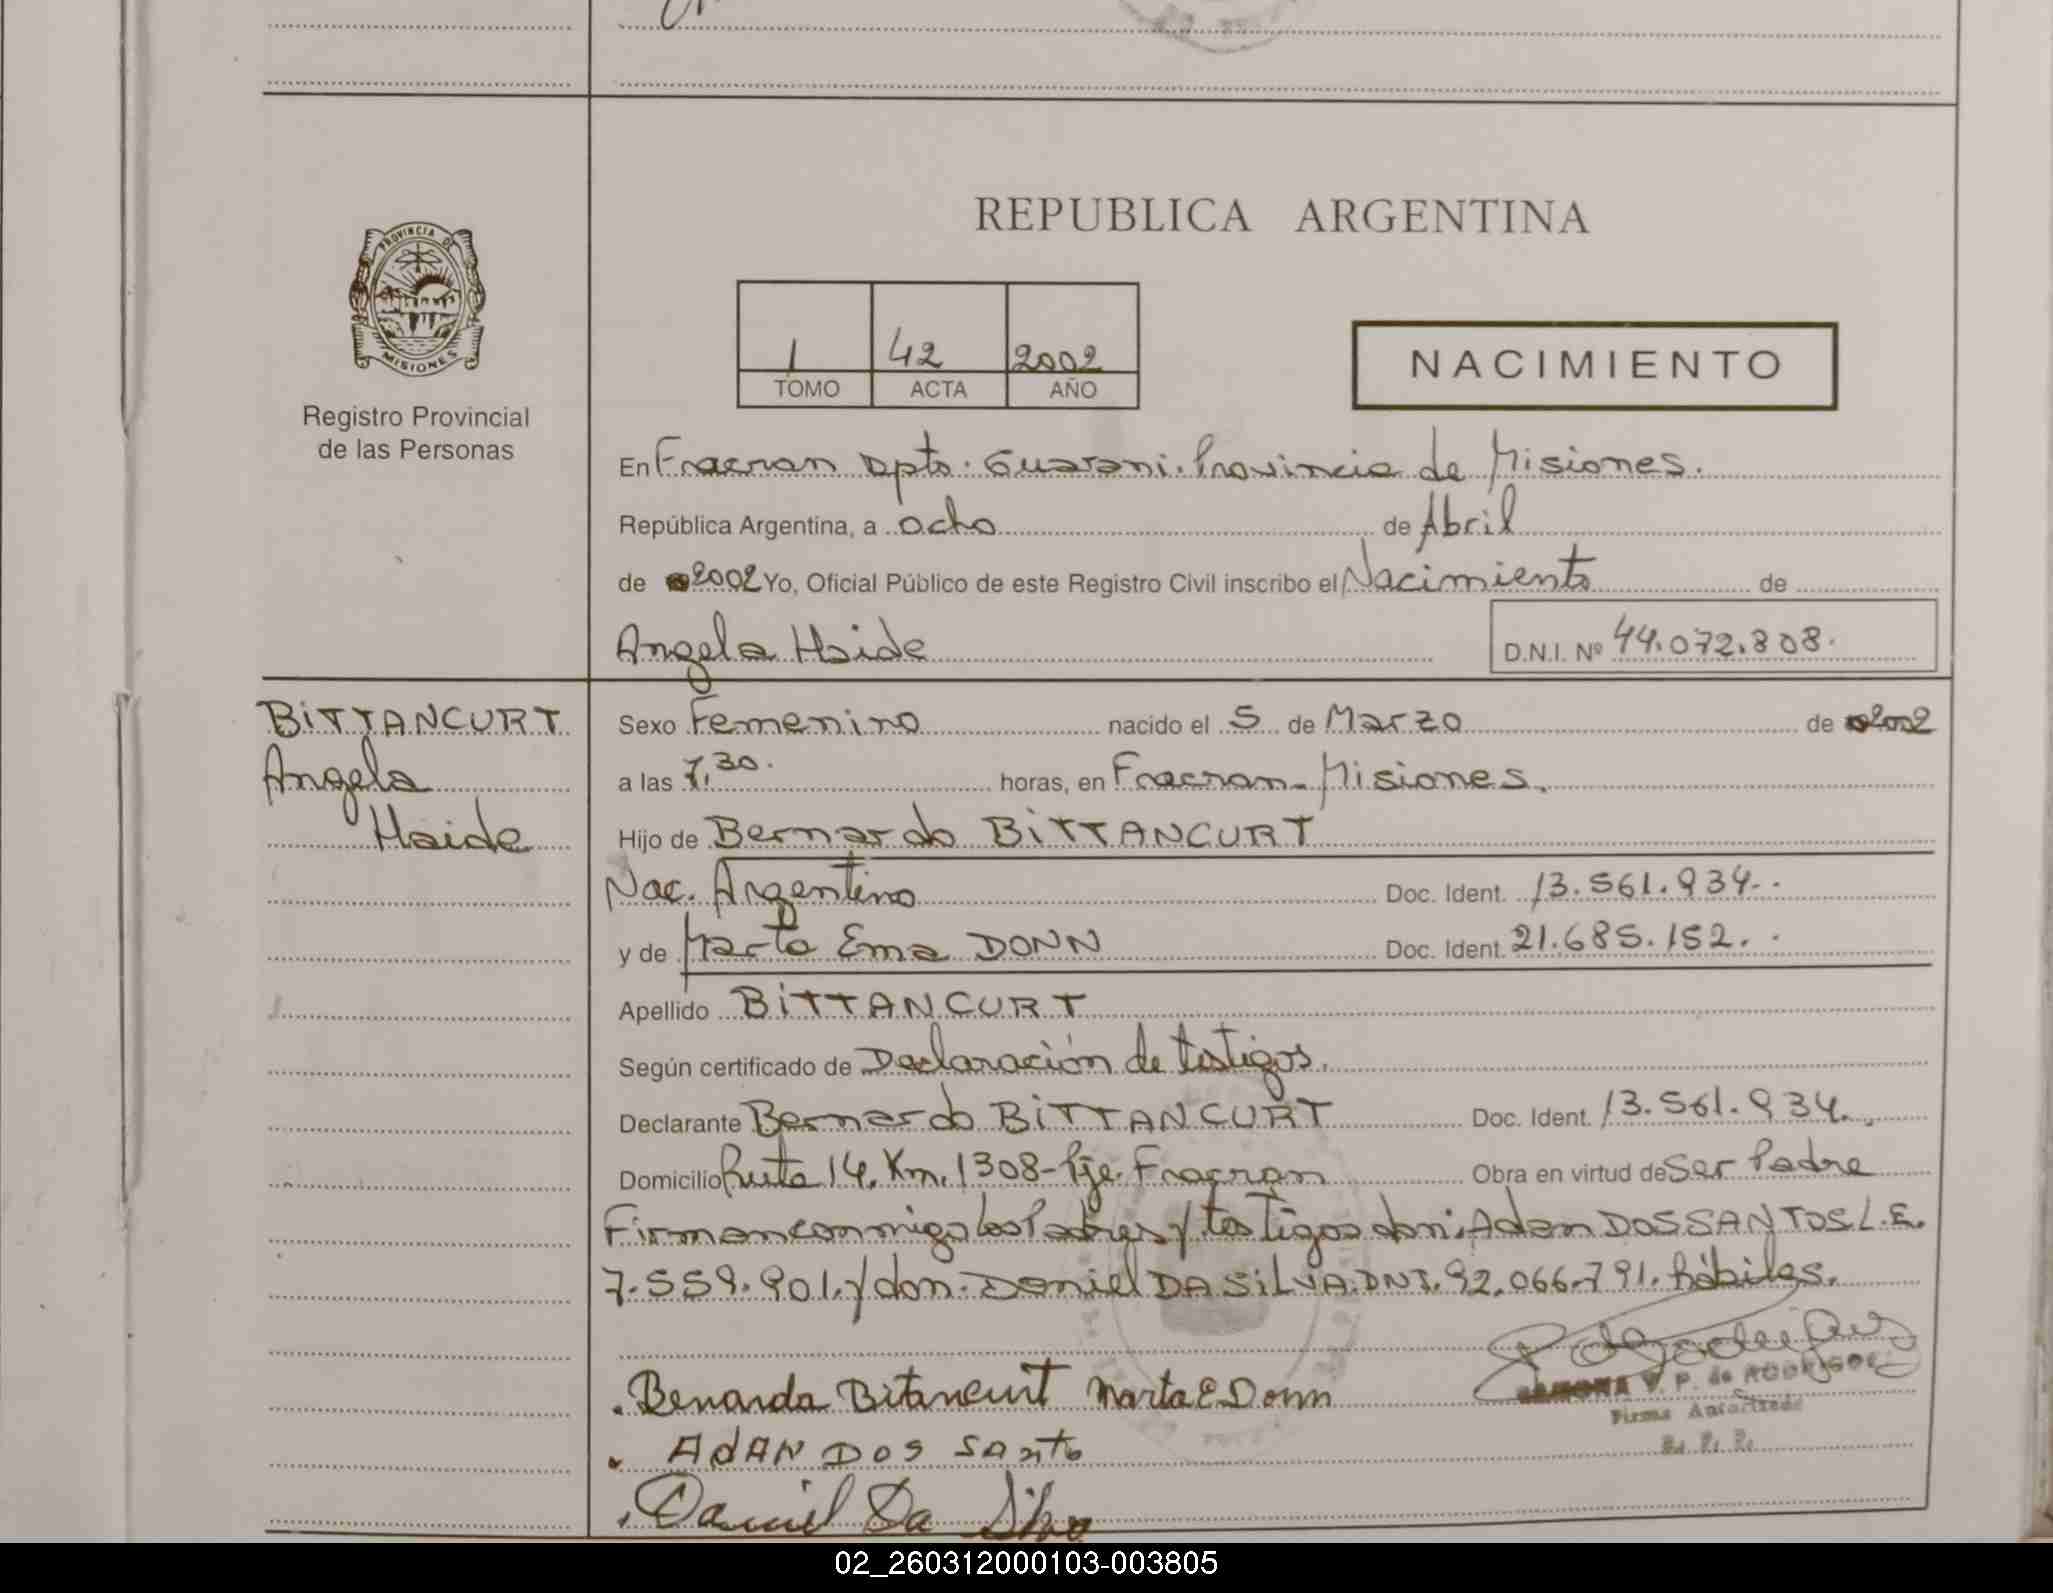 REPUBLICA ARGENTINA
PROVINCIA DE
MISIONES
Registro Provincial
de las Personas
1 42 2002
TOMO ACTA AÑO
NACIMIENTO
En Fracran Dpto. Guarani. Provincia de Misiones.
República Argentina, a ocho de Abril
de 2002 Yo, Oficial Público de este Registro Civil inscribo el Nacimiento de
Angela Haide D.N.I. Nº 44.072.808.
BITTANCURT
Angela
Haide
Sexo Femenino nacido el 5 de Marzo de 2002
a las 7,30. horas, en Fracran - Misiones.
Hijo de Bernardo BITTANCURT
Nac. Argentino Doc. Ident. 13.561.934.
y de Marta Ema DONN Doc. Ident. 21.685.152.
Apellido BITTANCURT
Según certificado de Declaración de testigos.
Declarante Bernardo BITTANCURT Doc. Ident. 13.561.934.
Domicilio Ruta 14. Km. 1308 - Pje. Fracran Obra en virtud de Ser Padre
Firman conmigo los Padres y testigos don: Adan DOS SANTOS L.E.
7.559.901. y don. Daniel DA SILVA. DNI. 92.066.791. hábiles.
Benarda Bitancurt Marta E Donn
V. P. de
Firma Autorizada
R. P. P.
ADAN DOS Santo
Daniel Da Silva
02_260312000103-003805